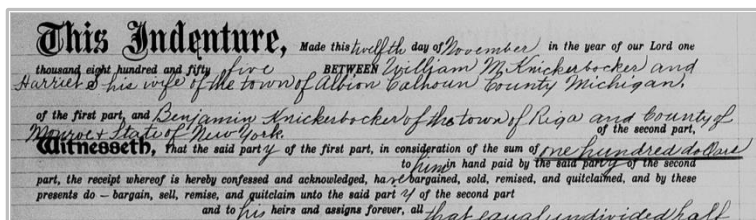 This Indenture, Made this twelfth day of November in the year of our Lord one
thousand eight hundred and fifty five BETWEEN William M Knickerbocker and
Harriet S his wife of the town of Albion Calhoun County Michigan.
of the first part, and Benjamin Knickerbocker of the town of Riga and County of
Monroe & State of New York. of the second part,
Witnesseth, that the said party of the first part, in consideration of the sum of one hundred dollars
to him in hand paid by the said party of the second
part, the receipt whereof is hereby confessed and acknowledged, have bargained, sold, remised, and quitclaimed, and by these
presents do – bargain, sell, remise, and quitclaim unto the said party of the second part
and to his heirs and assigns forever, all that equal undivided half